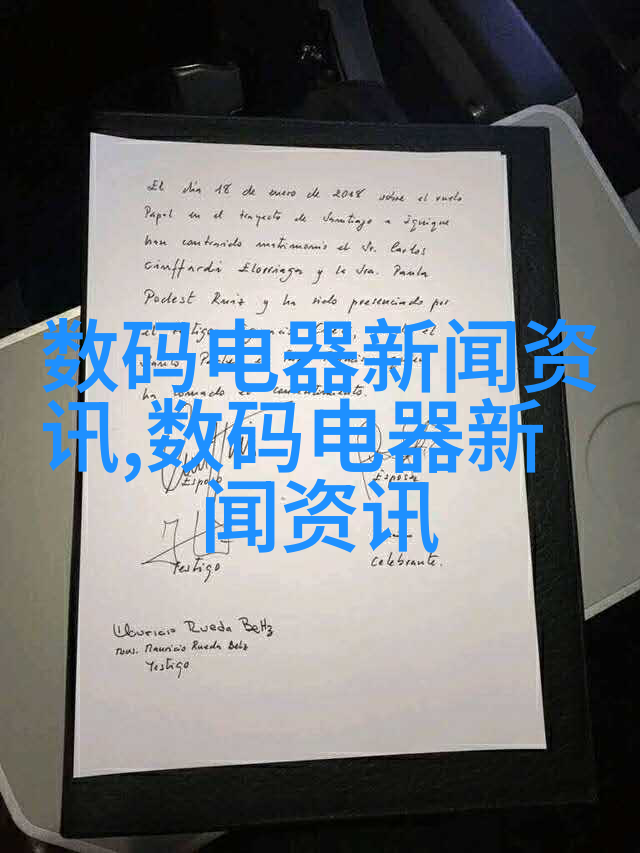 El día 18 de enero de 2018 sobre el vuelo
Papal en el trayecto de Santiago a Iquique
han contraido matrimonio el Sr. Carlos
Ciuffardi Elorriaga y la Sra. Paula
Podest Ruiz y ha sido presenciado por
el
el
ha tomado el consentimiento.
数码电器新闻资
讯,数码电器新
闻资讯
Esposo
Esposa
Testigo
Celebrante.
Mauricio Rueda Beltz
Mons. Mauricio Rueda Beltz
Testigo